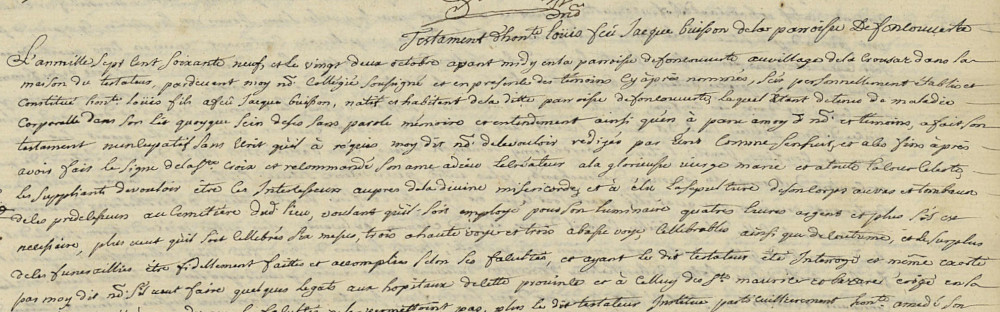 Testament d'hon.te Loüis feü Jacque buisson de la parroisse De foncouverte
L'an mille sept cent soixante neuf, et le vingt deux octobre apant midy en la parroisse de foncouverte au village de la Crousaz dans la
maison du testateur, pardevant moy n.re Collégié soussigné et en presence des temoins Cyaprès nommés, s'és personnellement établi et
Constitué hon.te Loüies fils a feü Jacque buisson, natif et habitant de la ditte parroisse de foncouverte, laquel étant detenus de maladie
Corporelle dans son lit quoyque sein de ses sans parole mémoire et entendement ainsi qu'en à paru a moy d. n.re et temoins, a fait son
testament nuncupatif sans Ecrit qu'il à réquis moy dit n.re de le vouloir redigés par Ecrit Comme s'ensuit, et a les fins après
avoir fait le signe de la s.te Croix et recommandé son ame a dieu le Créateur a la glorieuse vierge marie et a toute la Cour Celeste,
les suppliants de vouloir être les Intercesseurs aupres de la divine misericorde, et à élu la sepulture de son corps au vas et tombeau
de ses prédecesseurs au Cemetiére dud. lieu, voulant qu'il soit employé pour son luminaire quatres livres argent et plus s'il est
necessaire, plus veut qu'il soit Cellebrés six messes, trois a haute voye et trois a basse voye, Cellebrables ainsi que de coutume, et de surplus
de ses funerailles être fidellement faittes et accomplies selon ses facultés, et ayant le dit testateur été Interogé et même exorté
par moy dit n.re s'il veut faire quelques legats aux hopitaux de cette province et à Celluy des s.ts maurice et lazare érigé en la
facultés ne le permettront pas, plus le dit testateur Institue particuillierement hon.te amedé son